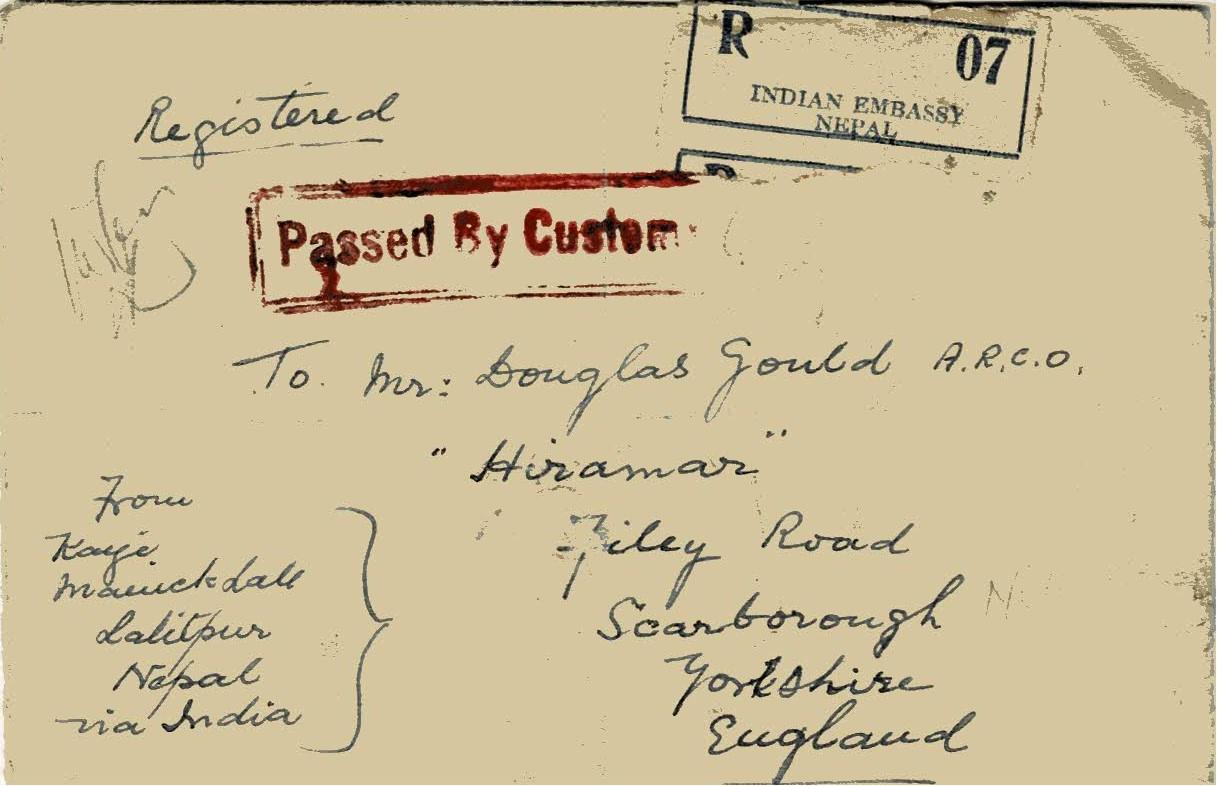 R 07
INDIAN EMBASSY
NEPAL
Registered
R
Passed By Custom
To. Mr: Douglas Gould A.R.C.O.
"Hiramar"
Filey Road
Scarborough
Yorkshire
England
From
Kaije
Manickdall
Lalitpur
Nepal
via India